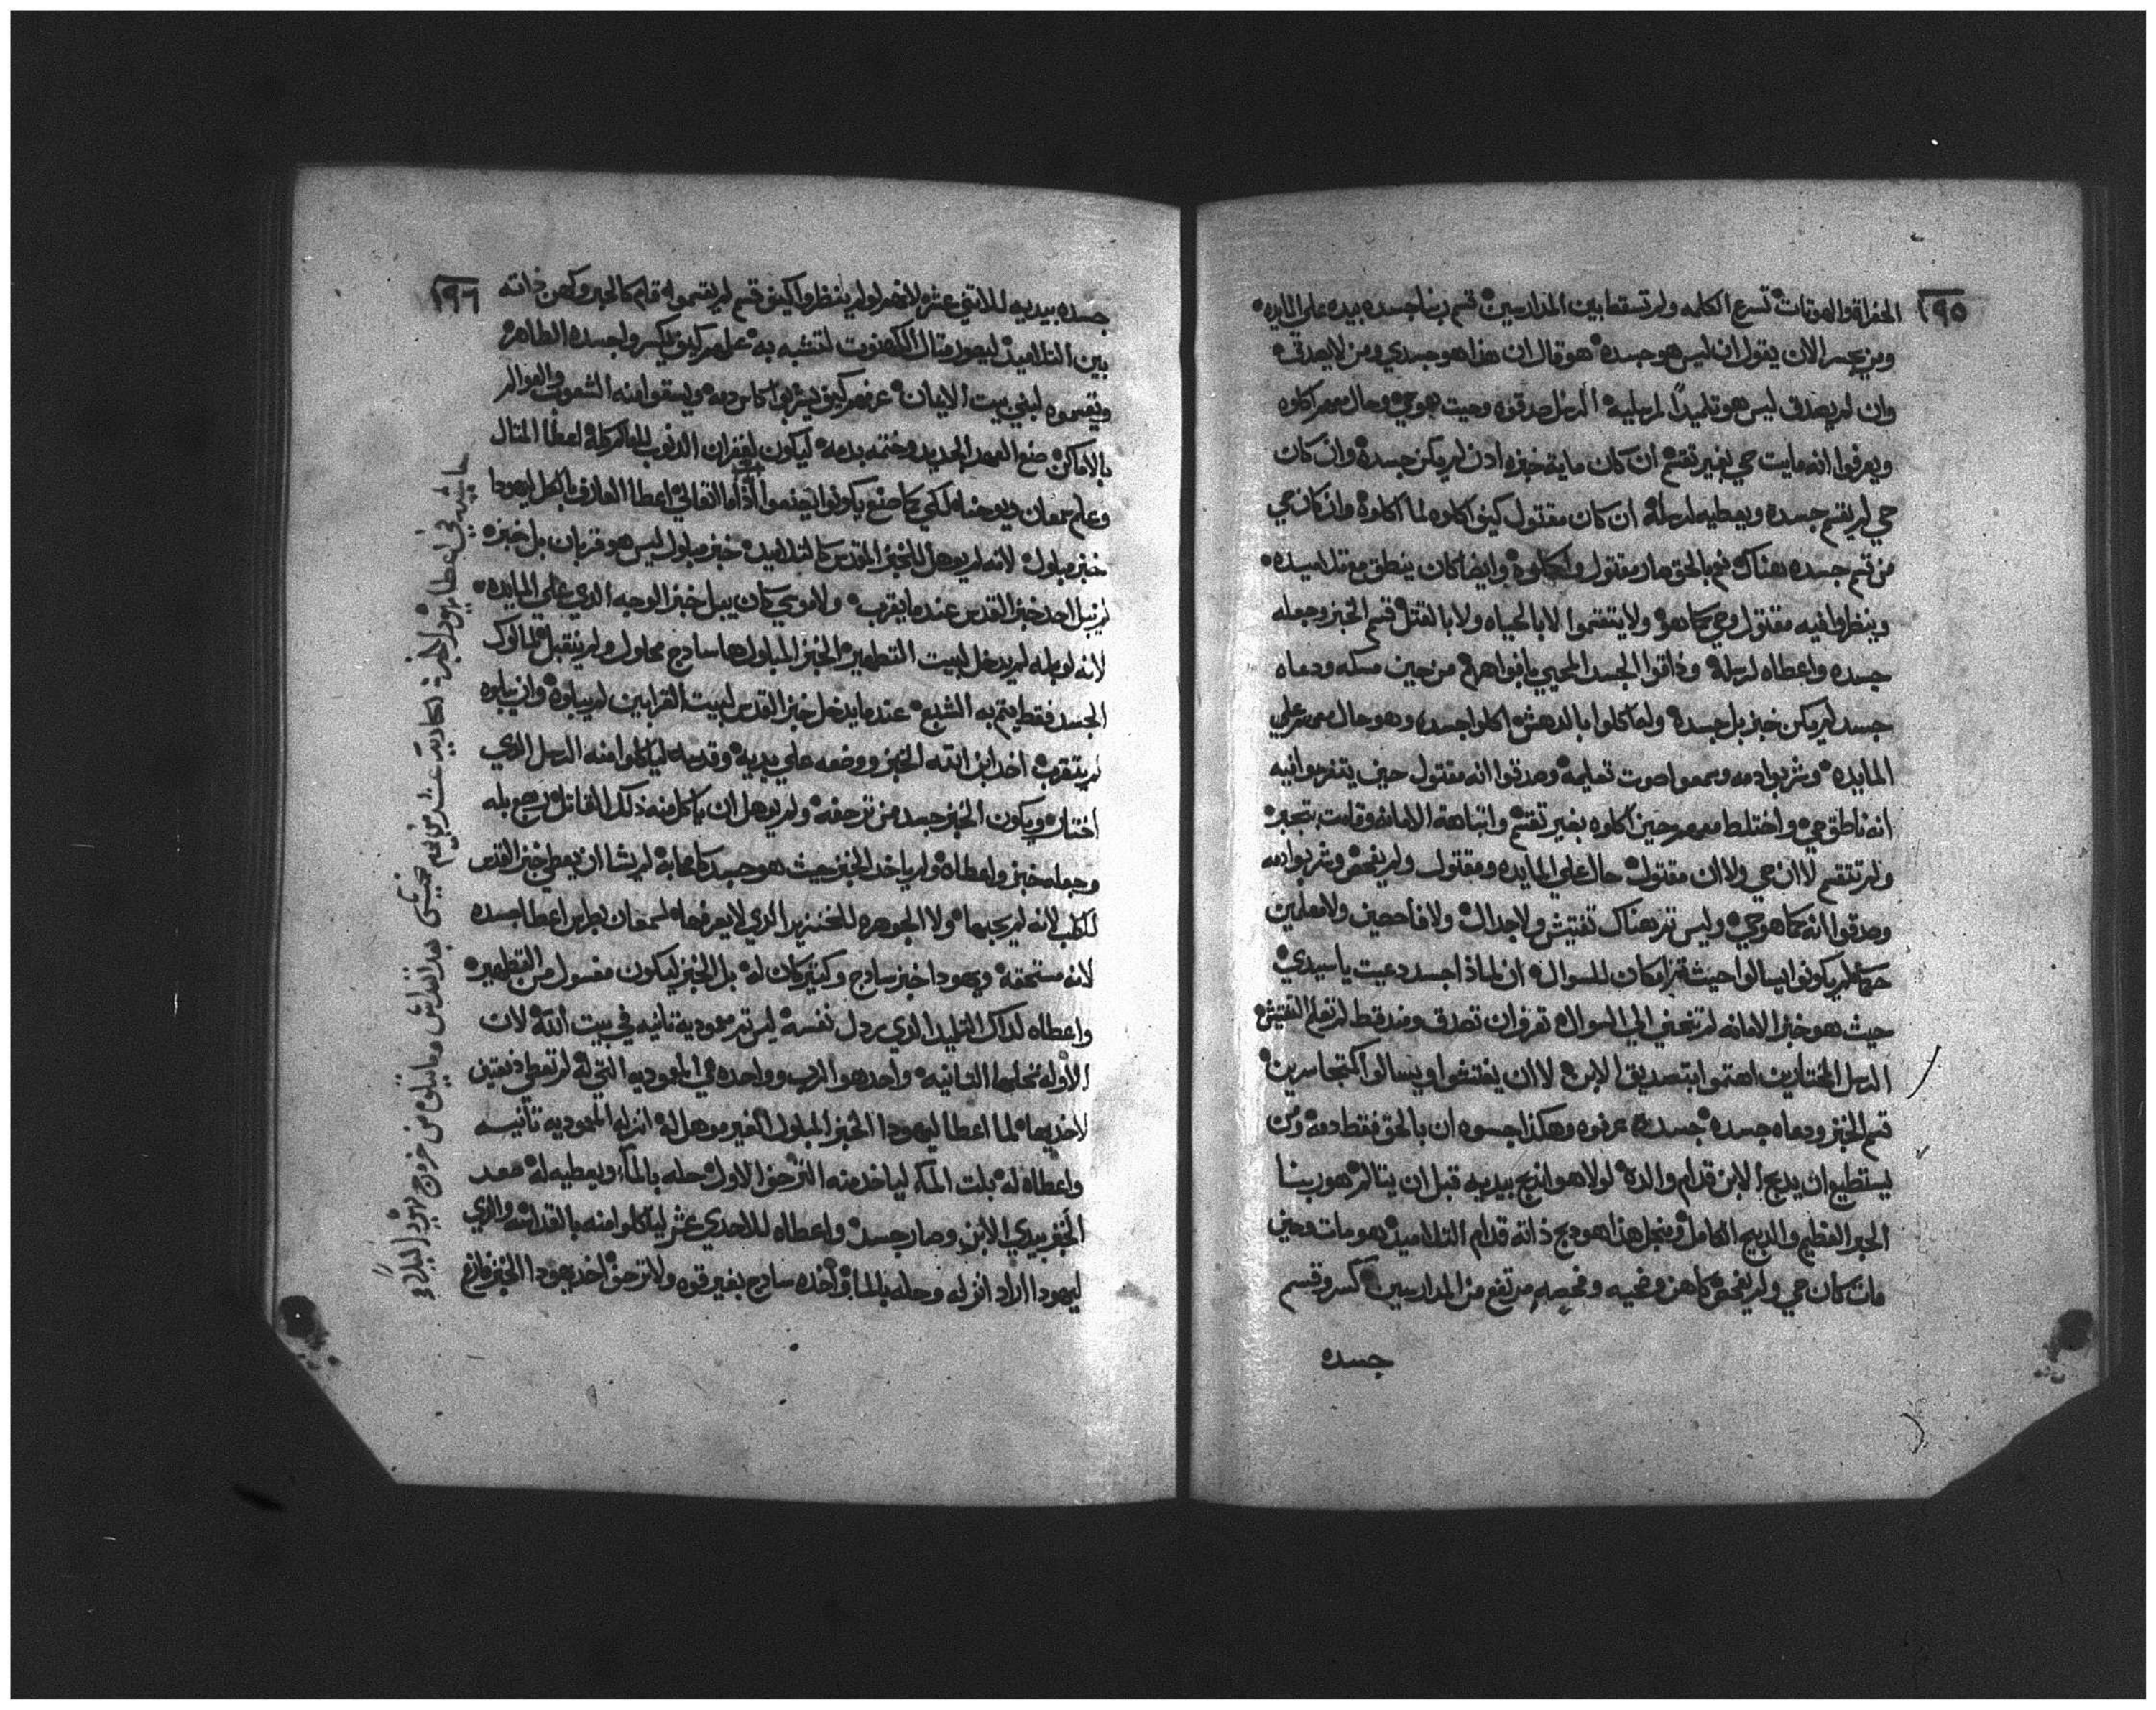 ١٩٥
الحفراة والهوتات تسرع الكلمه ولم تسقط بين المدارسين قسم ربنا جسده بيده علي المايده
ومن يجسر الان يقول ان ليس هو جسده هو قال ان هذا هو جسدي ومن لا يصدقه
وان لم يصدق ليس هو تلميدًا لرسليه الرسل صدقوه وحيث هو حي وحال معهم اكلوه
ويعرفوا انه مايت حي بغير تقتم ان كان ماية خبزه ادن لم يكن جسده وان كان
حي لم يقسم جسده ويعطيه لرسله ان كان مقتول كيف اكلوه لما اكلوه وان كان حي
من تم جسده هناك نعم بالحق صار مقتول واكلوه وايضا كان ينطق مع تلاميده
وينظروا فيه مقتول وحي كما هو ولا يتقتموا لا بالحياه ولا بالقتل قسم الخبز وجعله
جسده واعطاه لرسله وذاقوا الجسد المحيي بافواههم من حين مسكه ودعاه
جسد لم يكن خبز بل جسده ولما كلوا بالدهش اكلوا جسده وهو حال معهم علي
المايده وشربوا دمه وسمعوا صوت تعليمه وصدقوا انه مقتول حين يتفرسوا فيه
انه ناطق حي واختلط معهم حين اكلوه بغير تقتم وانتباهة الامانه وقامت بتجبر
ولم تتقسم لا ان حي ولا ان مقتول حال علي المايده ومقتول ولم يفحص وشربوا دمه
وصدقوا انه كما هو حي وليس تم هناك تفتيش ولا جدال ولا فاحصين ولا معلمين
حكما لم يكونوا يسالوا حيث تم امكان للسوال ان لماذا جسد دعيت يا سيدي
حيث هو خبز الامانه لم تنحني الي السوال تعرف ان تصدق ومند قط لم تعلم التفتيش
الرسل المختارين اهتموا بتصديق الابن لا ان يفتشوا ويسالوا كمتجاسرين
قسم الخبز ودعاه جسده جسده عرفوه وهكذا حسوه ان بالحق فقط دمه ومن
يستطيع ان يدبح الابن قدام والده لولا هو اندبح بيديه قبل ان يتالم هو ربنا
الحبر العظيم والدبيح الكامل ومنجل هذا هو دبح ذاته قدام التلاميد هو مات وحين
مات كان حي ولم يفحص كاهن وضحيه وفحصه مرتفع من المدارسين كسر وقسم
جسده
١٩٦
جسده بيديه للاتني عشر لانهم لو لم ينظروا كيف قسم لم يقسموه قام كالحبر وكهن ذاته
بين التلاميد ليصور متال الكهنوت لتتشبه به علمهم كيف يكسروا جسده الطاهر
ويقسموه لبني بيت الايمان عرفهم كيف يشربوا كاس دمه ويسقوا منه الشعوب والعوالم
بالاماكن صنع العهد الجديد وختمه بدمه ليكون لغفران الدنوب للمأكرطه اعطا المتال
وعلم سمعان ويوحنا لكي كما صنع يكونوا يصنعوا اذا ما التعالي اعطا العارف بالكل ليهودا
خبز مبلول لانه لم يوهل للخبز المقدس كالتلاميد خبز مبلول ليس هو قربان بل خبز
لم نبل احد خبز القدس عندما يقرب ولا موسي كان يبل خبز الوجه الدي علي المايده
لانه لو بله لم يدخل لبيت التطهير الخبز المبلول ها سادج محلول ولم ينقبل لماكول
الجسد فقط يتم به الشبع عندما يدخل خبز القدس لبيت القرابين لم يبلوه وان يبلوه
لم يتقرب اخد ابن الله الخبز ووضعه علي يديه وقدسه لياكلوا منه الرسل الدي
اختار ويكون الخبز جسد من ترحفه ولم يوهل ان ياكل منه ذلك القاتل رجع بله
وجعله خبز واعطاه ولم ياخد الخبز حيث هو جسد كاصحابه لم يشا ان يعطي خبز القدس
للكلب لانه لم يحبها ولا الجوهره للخنزير الدي لا يعرفها لسمعان بطرس اعطا جسده
لانه مستحقه ويهودا خبز سادج وكتير كان له بل الخبز ليكون مغسول من التطهير
واعطاه لداك التلميد الدي ردل نفسه ليس تم معموديه تانيه في بيت الله لان
الاوله تحلها التانيه واحد هو الرب وواحده هي المعموديه التي له لم تعطي دفعتين
لاخديها لما اعطا ليهودا الخبز المبلول الغير موهل له انزله المعموديه تانيه
واعطاه له بلت الماء لياخد منه الترحف الاول حله بالماء ويعطيه له صعد
الخبز بيدي الابن وصار جسد واعطاه للاحدي عشر لياكلوا منه بالقداسه والدي
ليهودا اراد انزله وحله بالماء واخده سادج بغير قوه ولا ترحف اخد يهودا الخبز فارغ